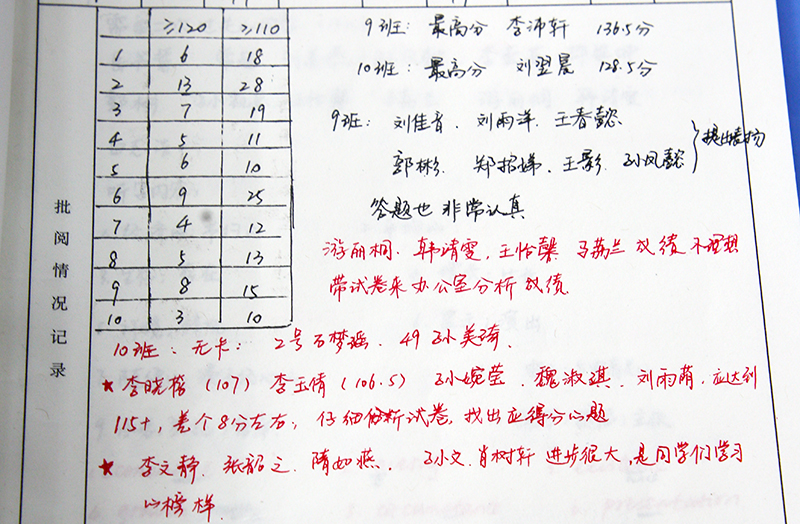 ≥120 ≥110
1 6 18
2 13 28
3 7 19
4 5 11
5 6 10
6 9 25
7 4 12
8 5 13
9 8 15
10 3 10
批阅情况记录
9班: 最高分 李沛轩 136.5分
10班: 最高分 刘翌晨 128.5分
9班: 刘佳音、刘雨洋、王春懿
郭彬、郑招娣、王影、孙凤懿 提出表扬
答题也非常认真
游丽桐、韩靖雯、王怡馨 马荔兰 成绩不理想
带试卷来办公室分析成绩
10班: 无卡: 2号石梦瑶、49孙美琦、
★李晓榕(107) 李玉倩(106.5) 孙婉莹、魏淑淇、刘雨荫, 应达到
115+, 差个8分左右, 仔细分析试卷, 找出应得分心题
★ 李文静、张韶之、隋如燕、孙文、肖树轩 进步很大, 是同学们学习
心榜样